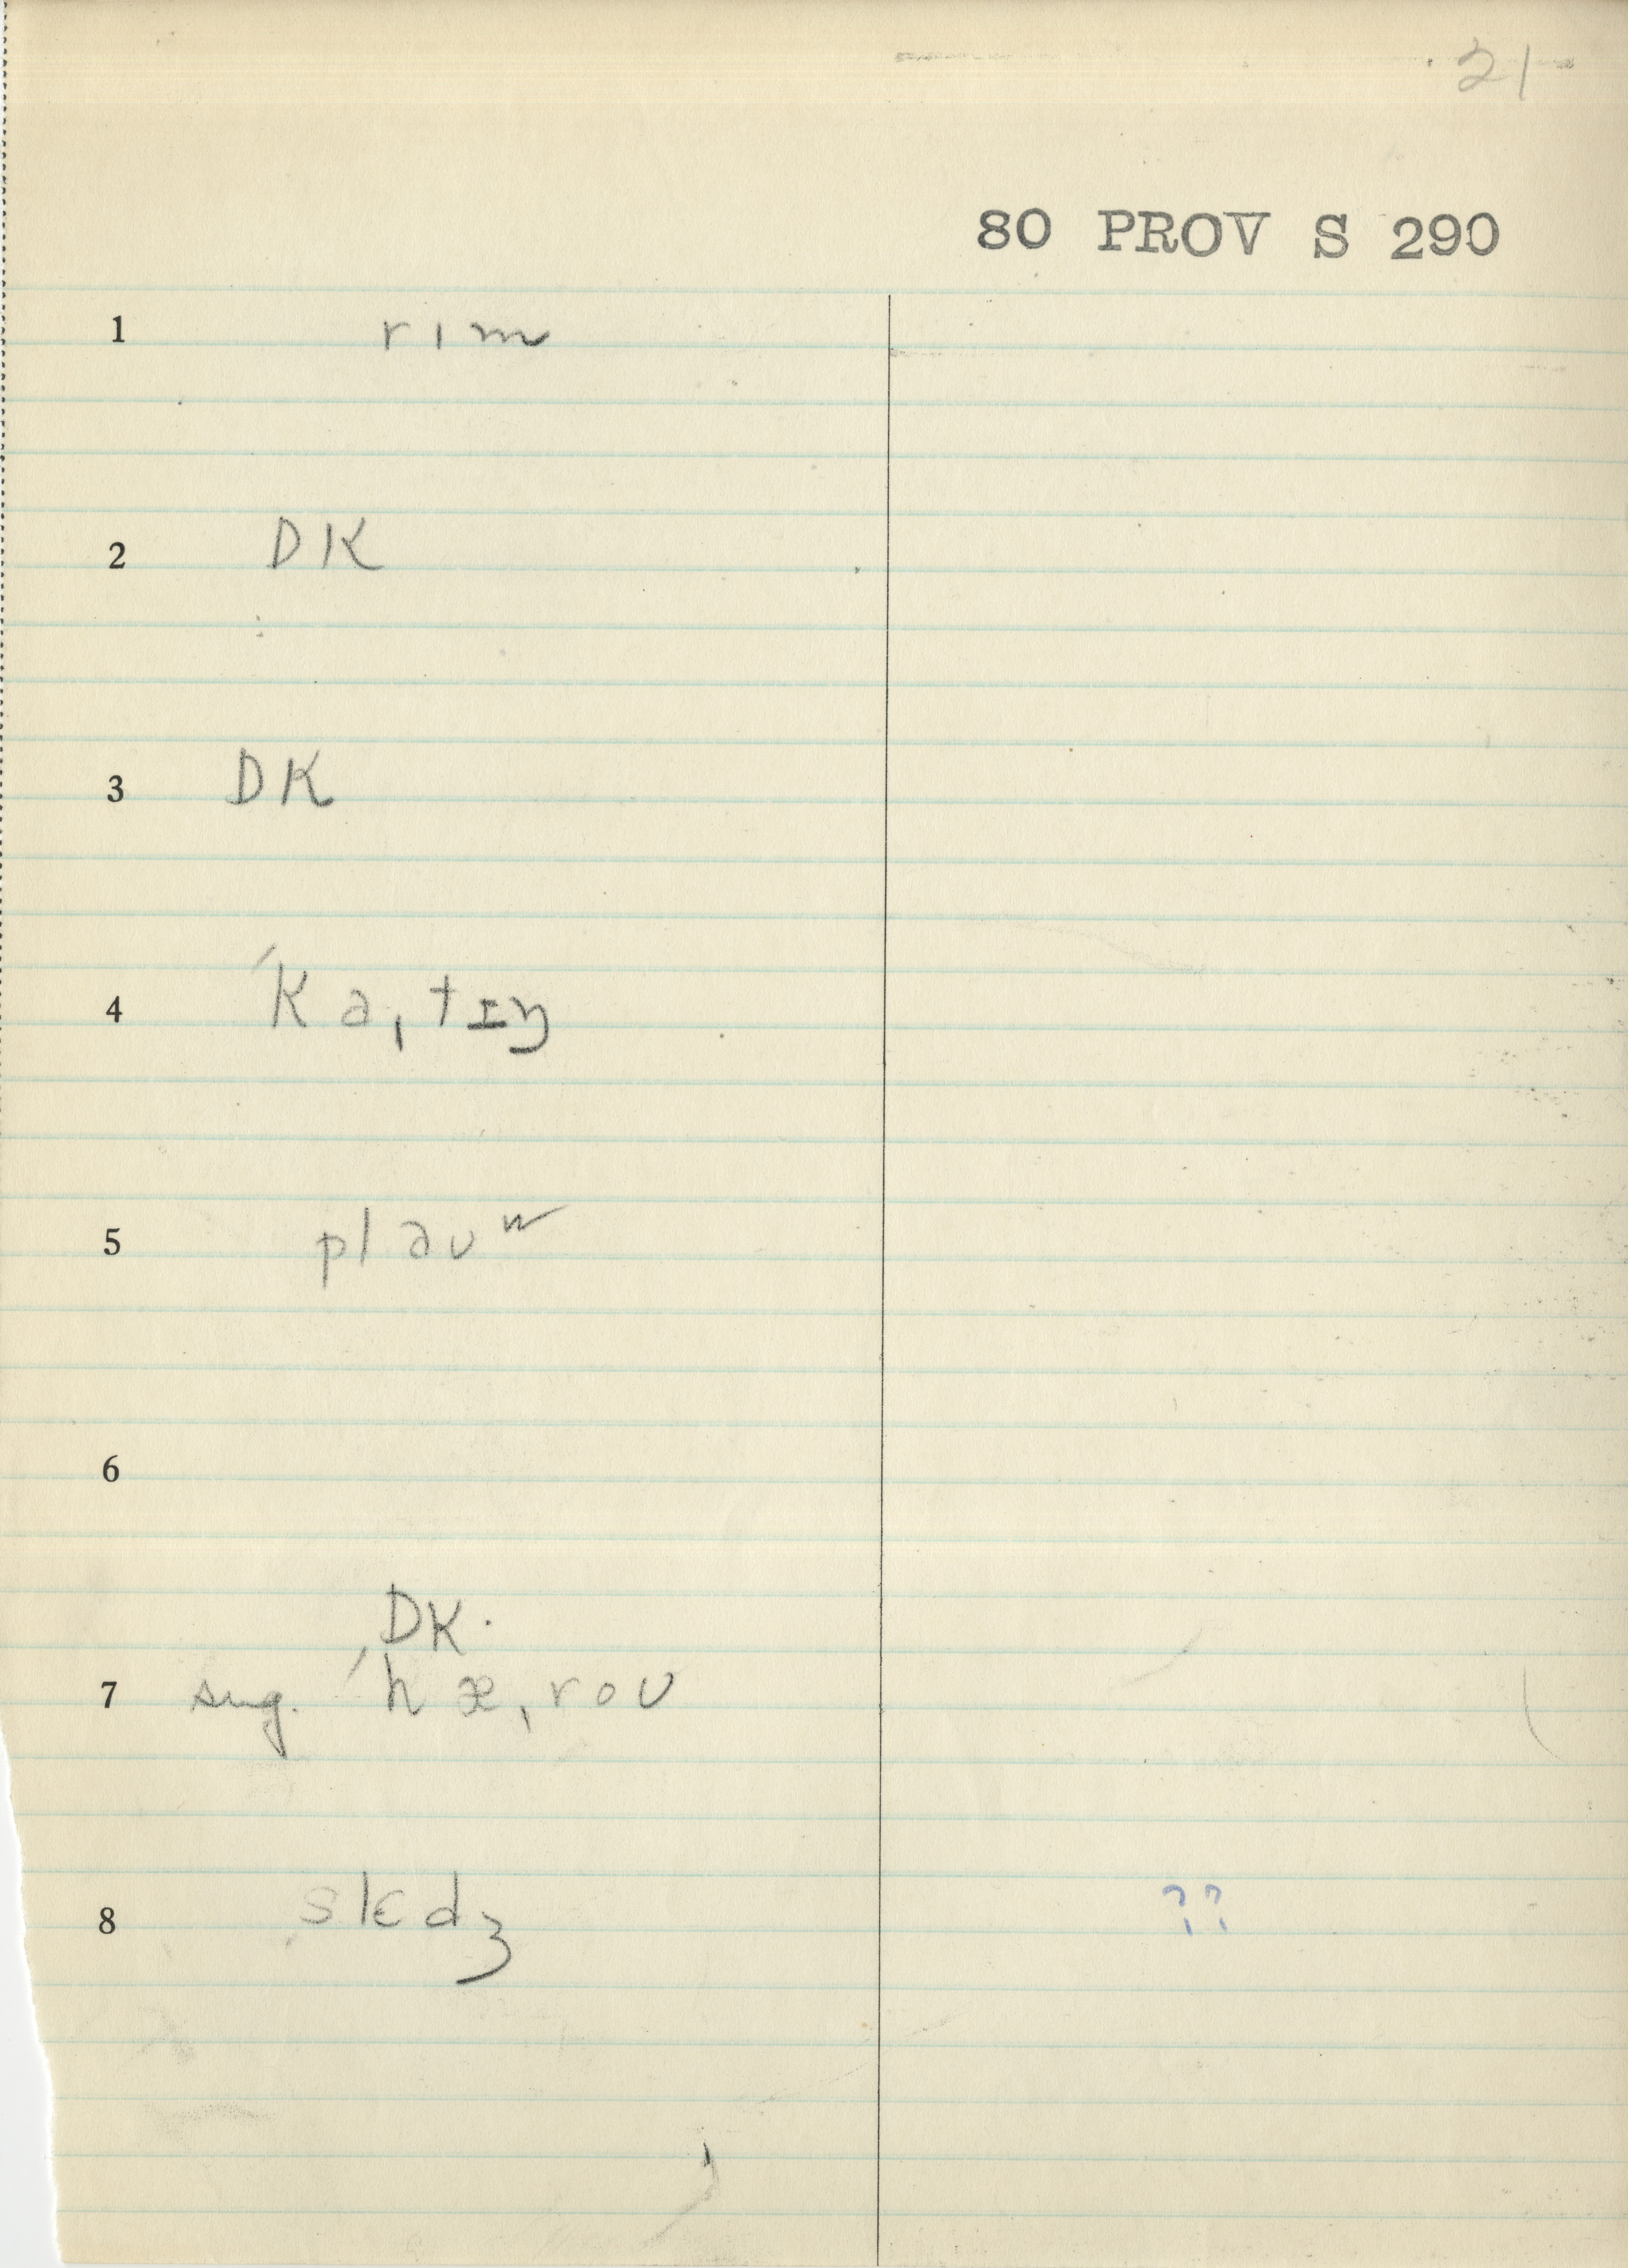 21
80 PROV S 290
1 rɪm
2 DK
3 DK
4 ˈkaˌtɪŋ
5 plaʊʷ
6
DK.
7 sug. ˈhæˌroʊ
8 slɛdʒ ??